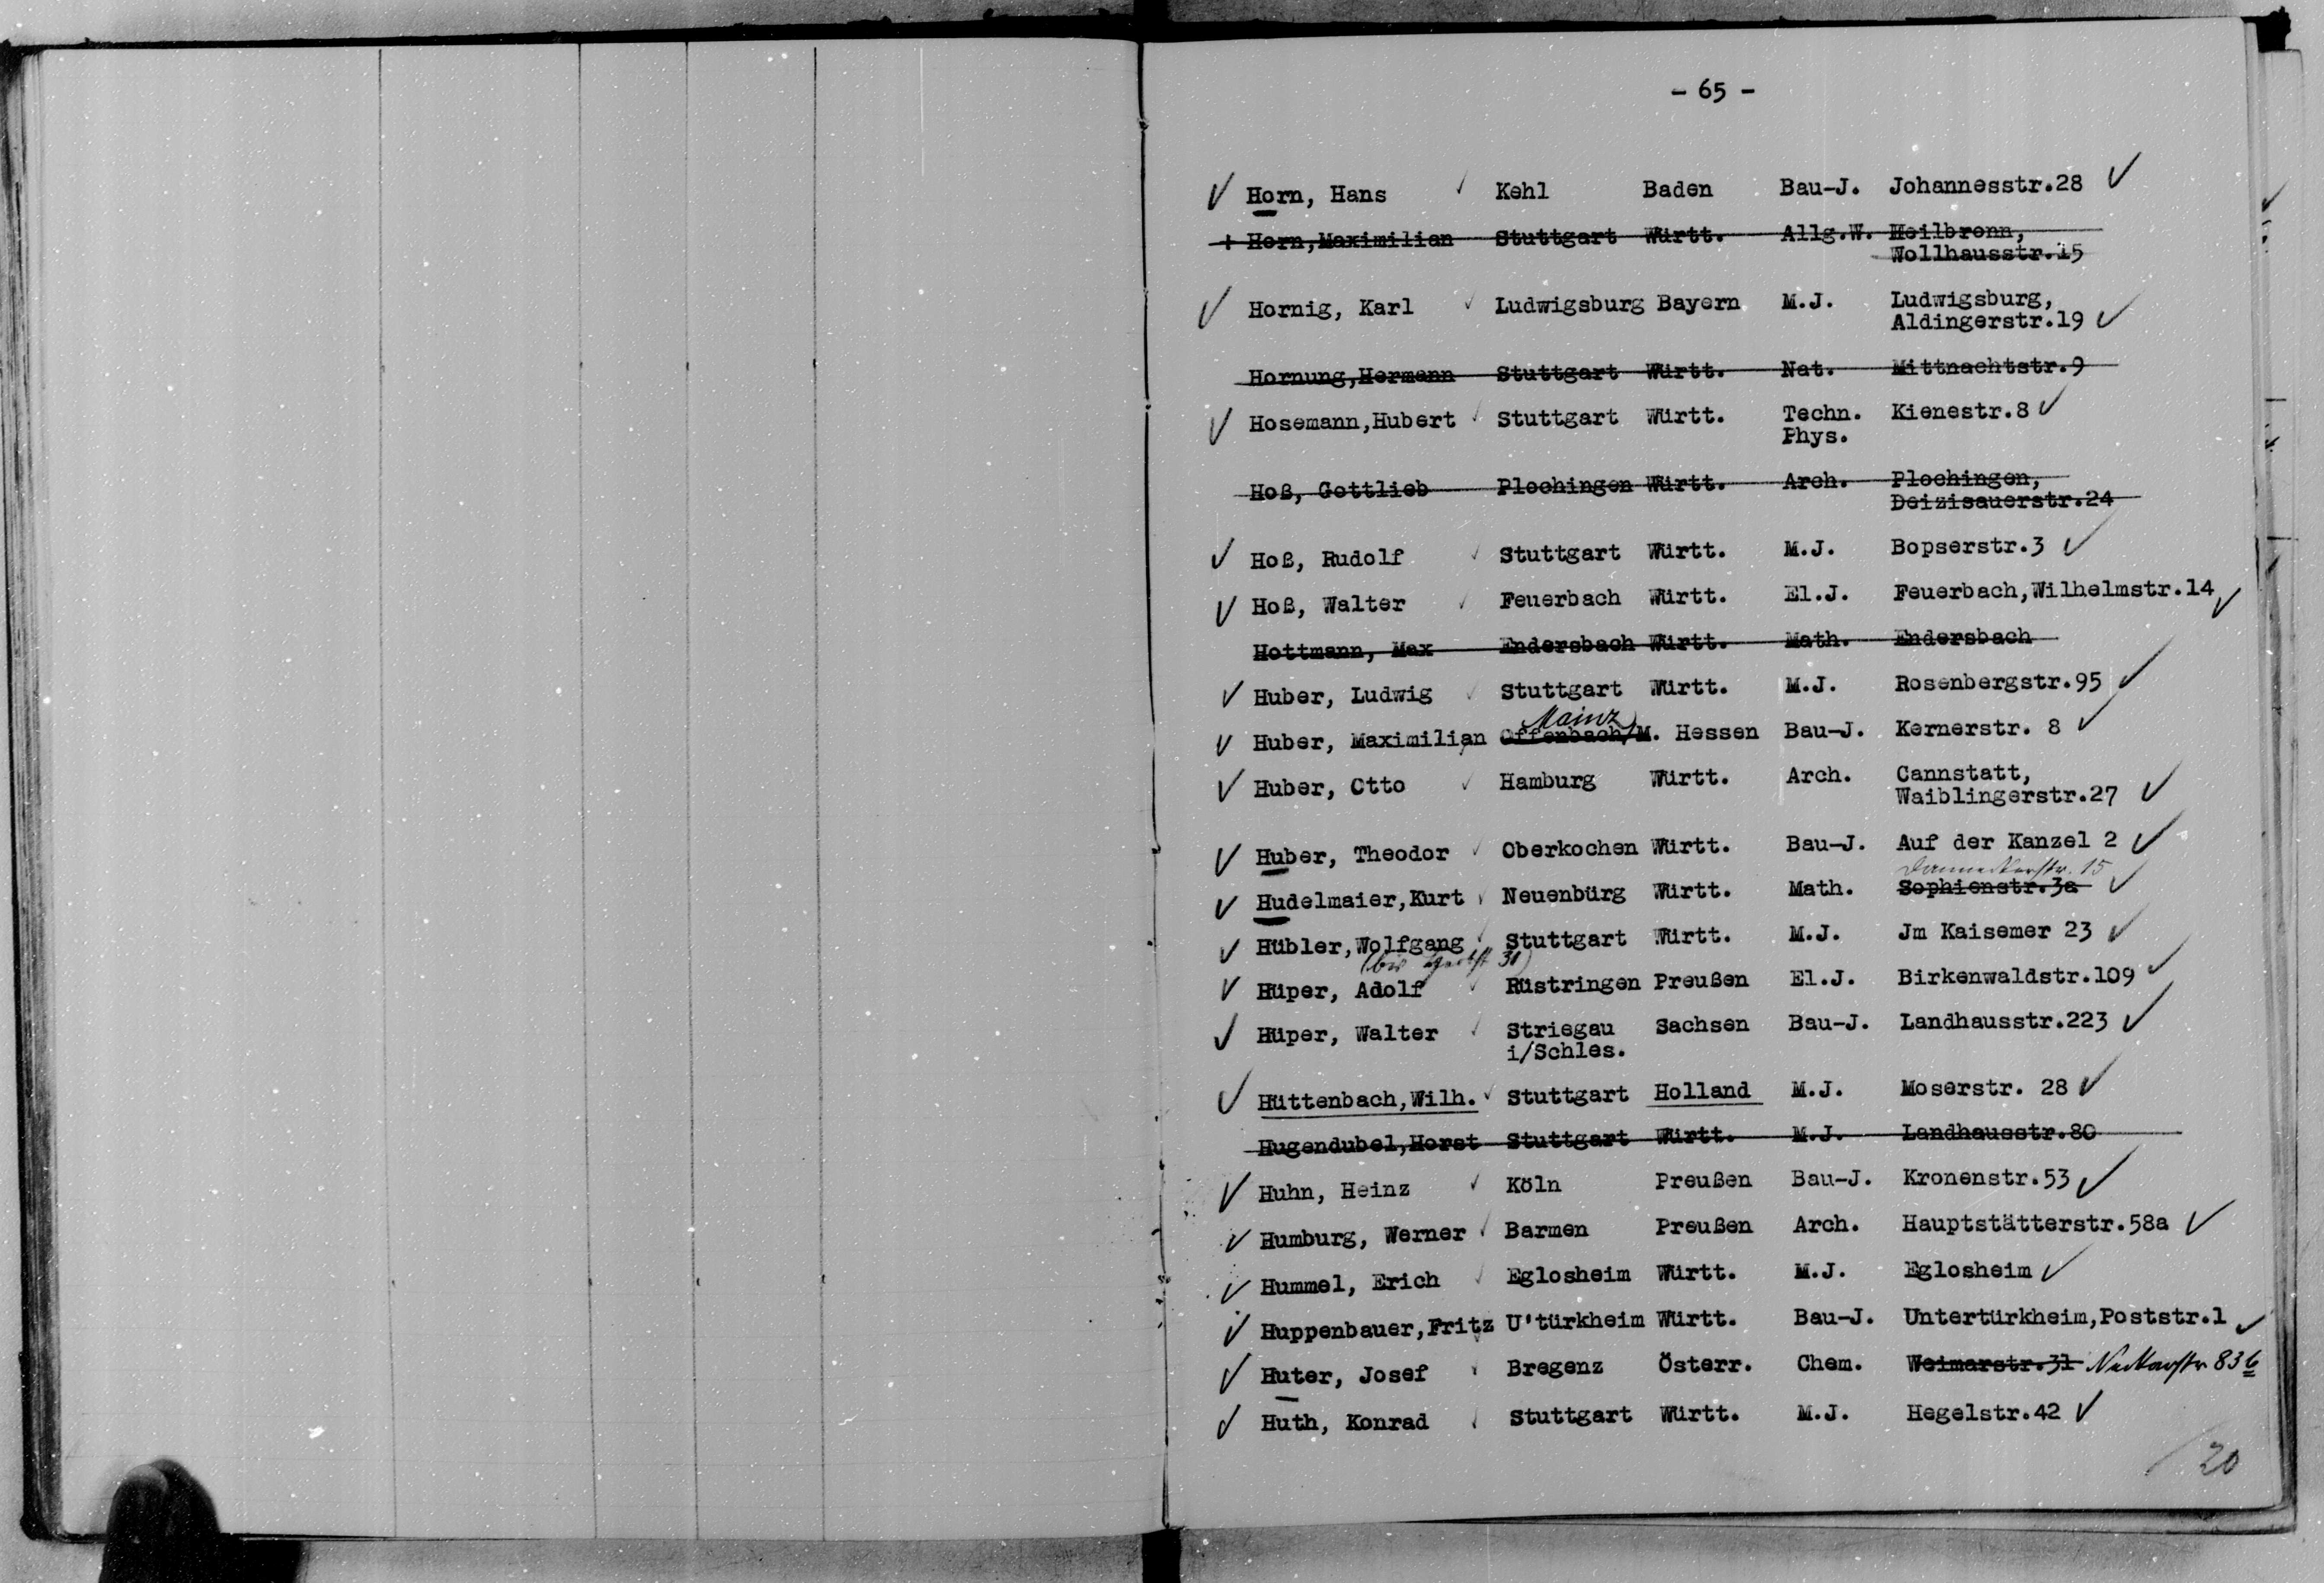 - 65 -
Horn, Hans Kehl Baden Bau-J. Johannesstr.28
+ Horn,Maximilian Stuttgart Württ. Allg.W. Heilbronn,
Wollhausstr.15
Hornig, Karl Ludwigsburg Bayern M.J. Ludwigsburg,
Aldingerstr.19
Hornung,Hermann Stuttgart Württ. Nat. Mittnachtstr.9
Hosemann,Hubert Stuttgart Württ. Techn. Kienestr.8
Phys.
Hoß, Gottlieb Plochingen Württ. Arch. Plochingen,
Deizisauerstr.24
Hoß, Rudolf Stuttgart Württ. M.J. Bopserstr.3
Hoß, Walter Feuerbach Württ. El.J. Feuerbach,Wilhelmstr.14
Hottmann, Max Endersbach Württ. Math. Endersbach
Huber, Ludwig Stuttgart Württ. M.J. Rosenbergstr.95
Mainz
Huber, Maximilian Offenbach/M. Hessen Bau-J. Kernerstr. 8
Huber, Otto Hamburg Württ. Arch. Cannstatt,
Waiblingerstr.27
Huber, Theodor Oberkochen Württ. Bau-J. Auf der Kanzel 2
Danneckerstr. 15
Hudelmaier,Kurt Neuenbürg Württ. Math. Sophienstr.3a
Hübler,Wolfgang Stuttgart Württ. M.J. Jm Kaisemer 23
(bis Herbst 31)
Hüper, Adolf Rüstringen Preußen El.J. Birkenwaldstr.109
Hüper, Walter Striegau Sachsen Bau-J. Landhausstr.223
i/Schles.
Hüttenbach,Wilh. Stuttgart Holland M.J. Moserstr. 28
Hugendubel,Horst Stuttgart Württ. M.J. Landhausstr.80
Huhn, Heinz Köln Preußen Bau-J. Kronenstr.53
Humburg, Werner Barmen Preußen Arch. Hauptstätterstr.58a
Hummel, Erich Eglosheim Württ. M.J. Eglosheim
Huppenbauer,Fritz U'türkheim Württ. Bau-J. Untertürkheim,Poststr.1
Huter, Josef Bregenz Österr. Chem. Weimarstr.31 Neckarstr 83 b
Huth, Konrad Stuttgart Württ. M.J. Hegelstr.42
20